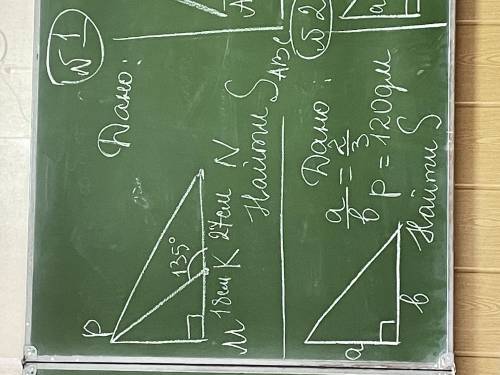 №1
Дано:
P
135°
M 18см K 27см N
Найти S ABC
№2
Дано:
a/b = 2/3
P = 120дм
Найти S
a
b
A
a